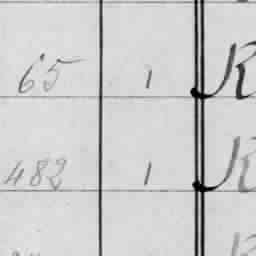 65 1 K
482 1 K